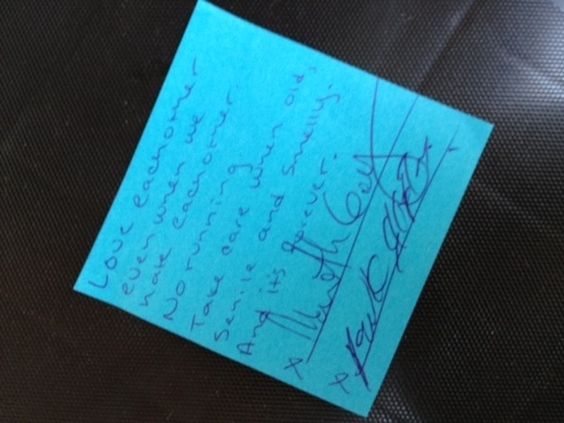 Love eachother
even when we
hate eachother.
No running
Take care when old,
senile and smelly.
And its forever.
x
x